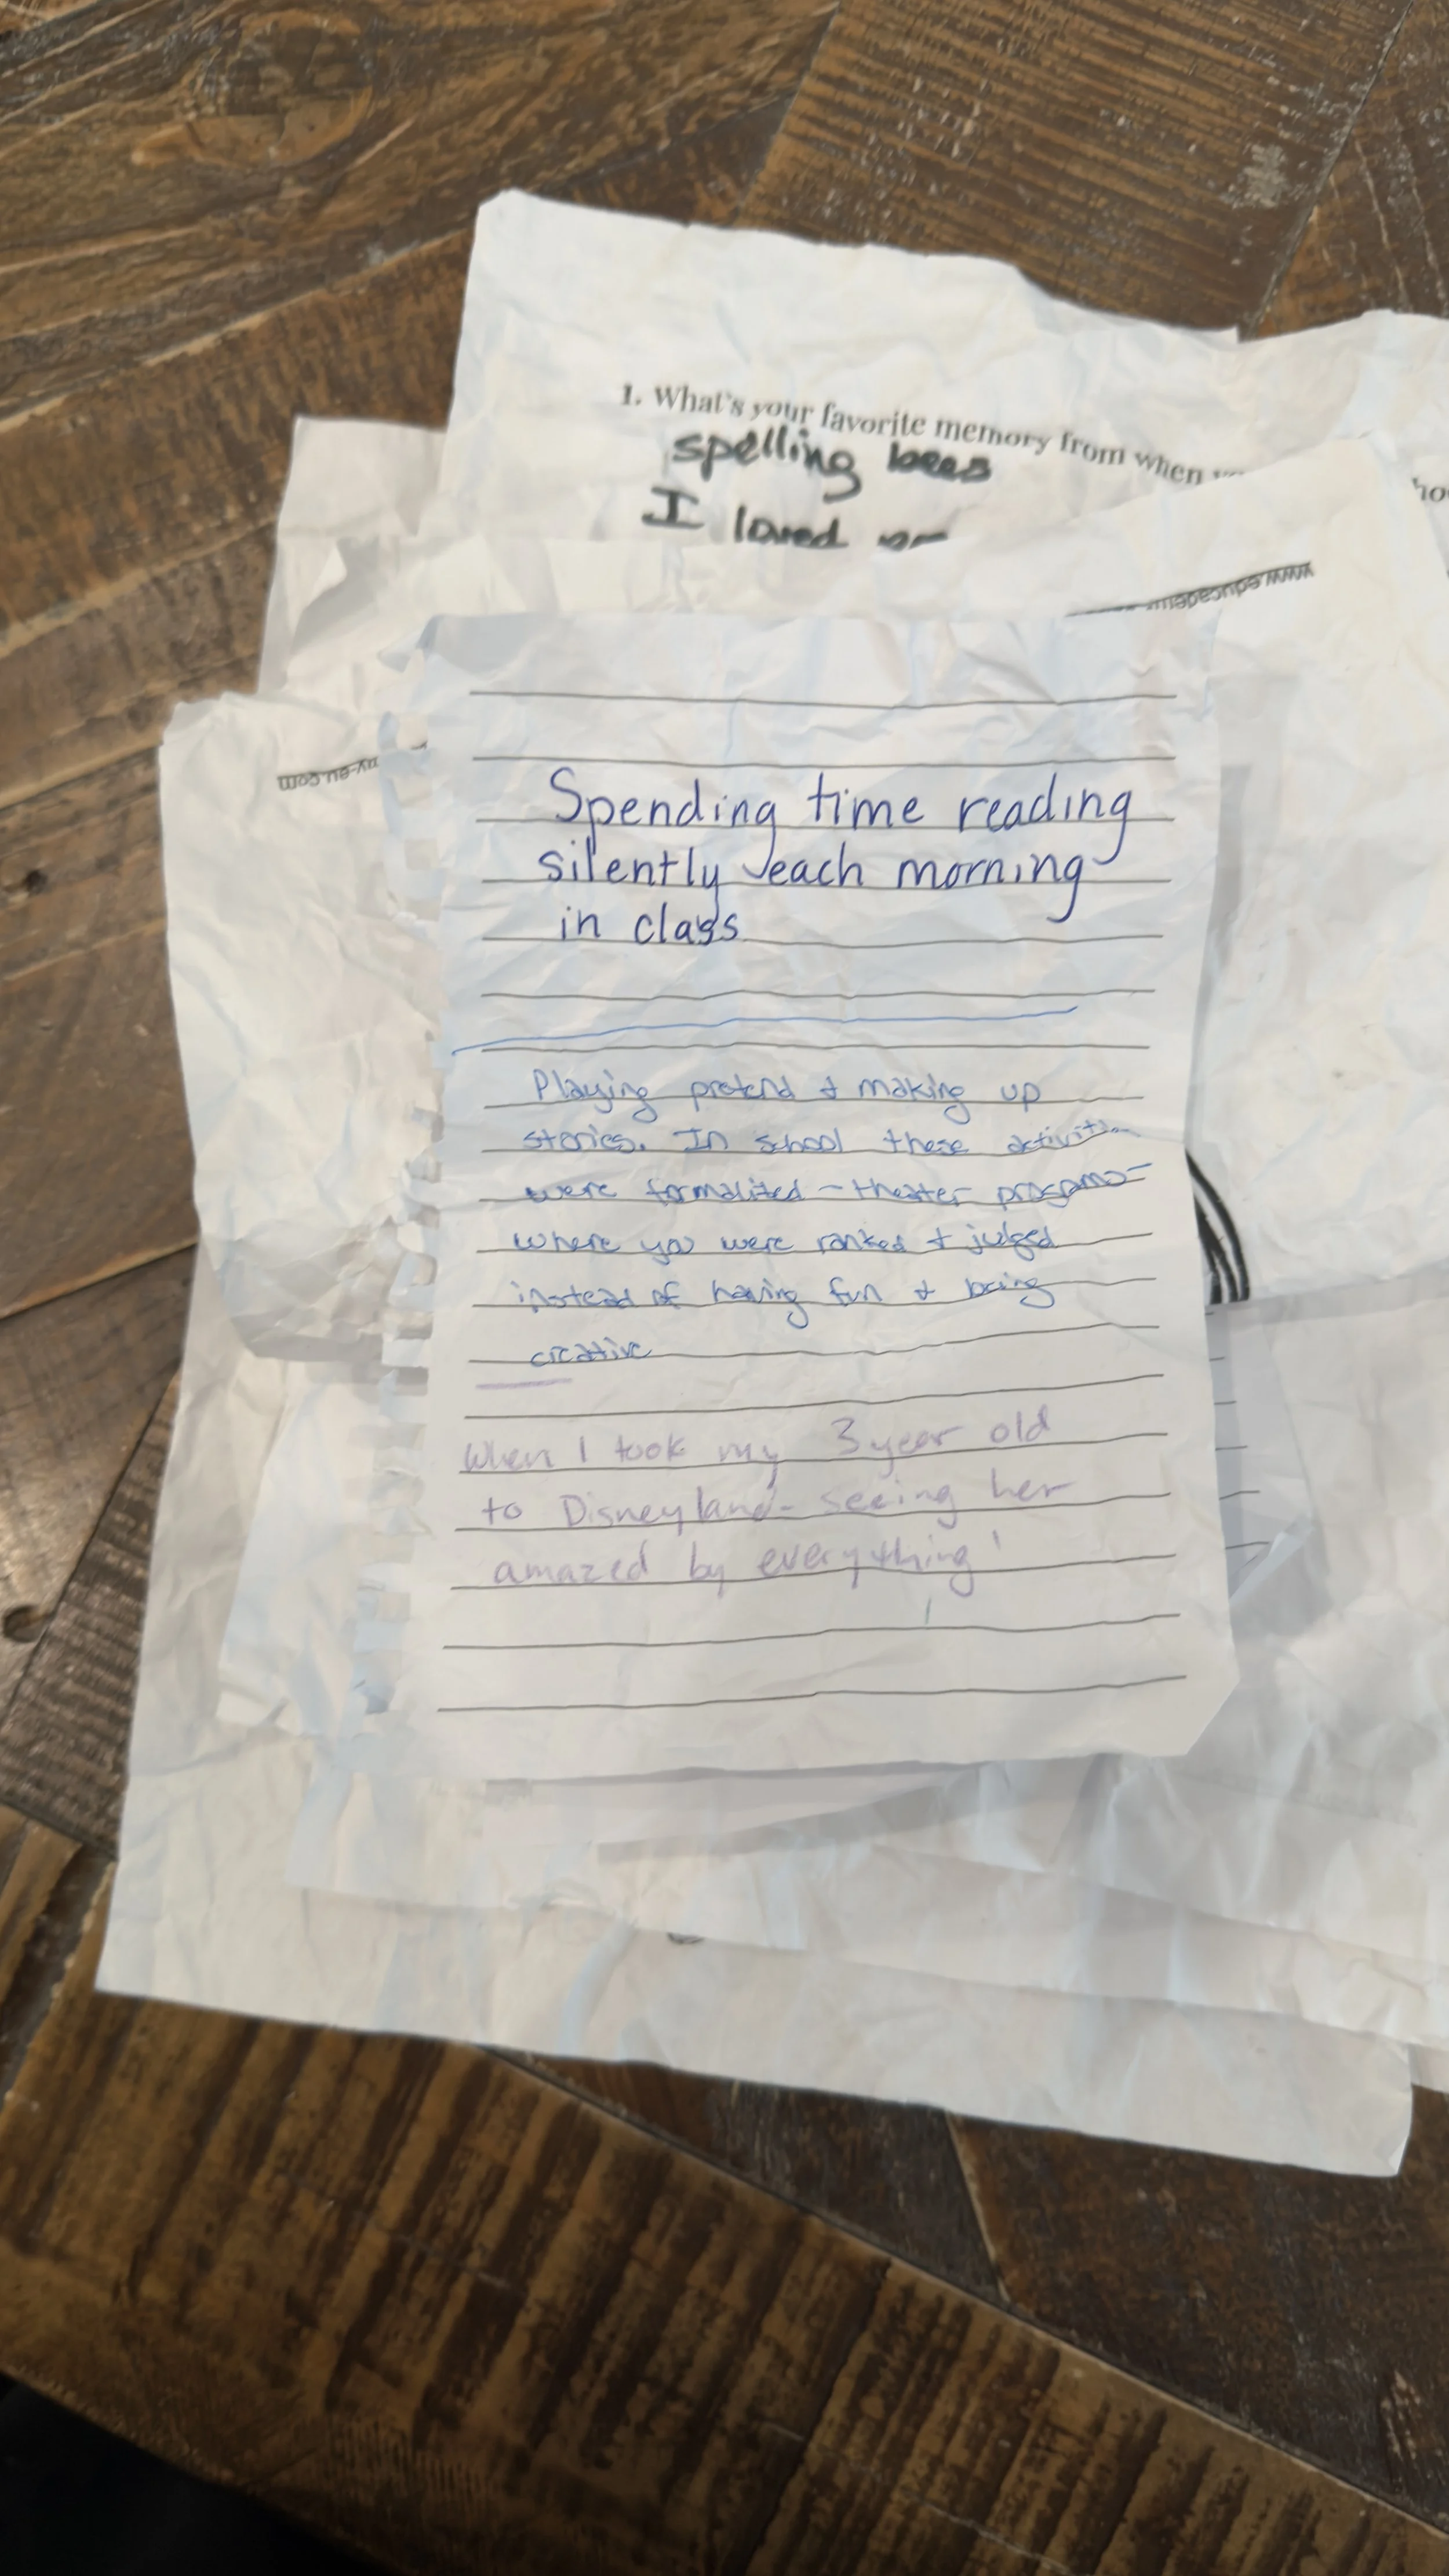 1. What's your favorite memory from when
spelling bees
I loved
www.educadem
ny-eu.com
Spending time reading
silently each morning
in class
Playing pretend & making up
stories. In school these activities
were formalized - theater programs -
where you were ranked & judged
instead of having fun & being
creative
When I took my 3 year old
to Disneyland - seeing her
amazed by everything!